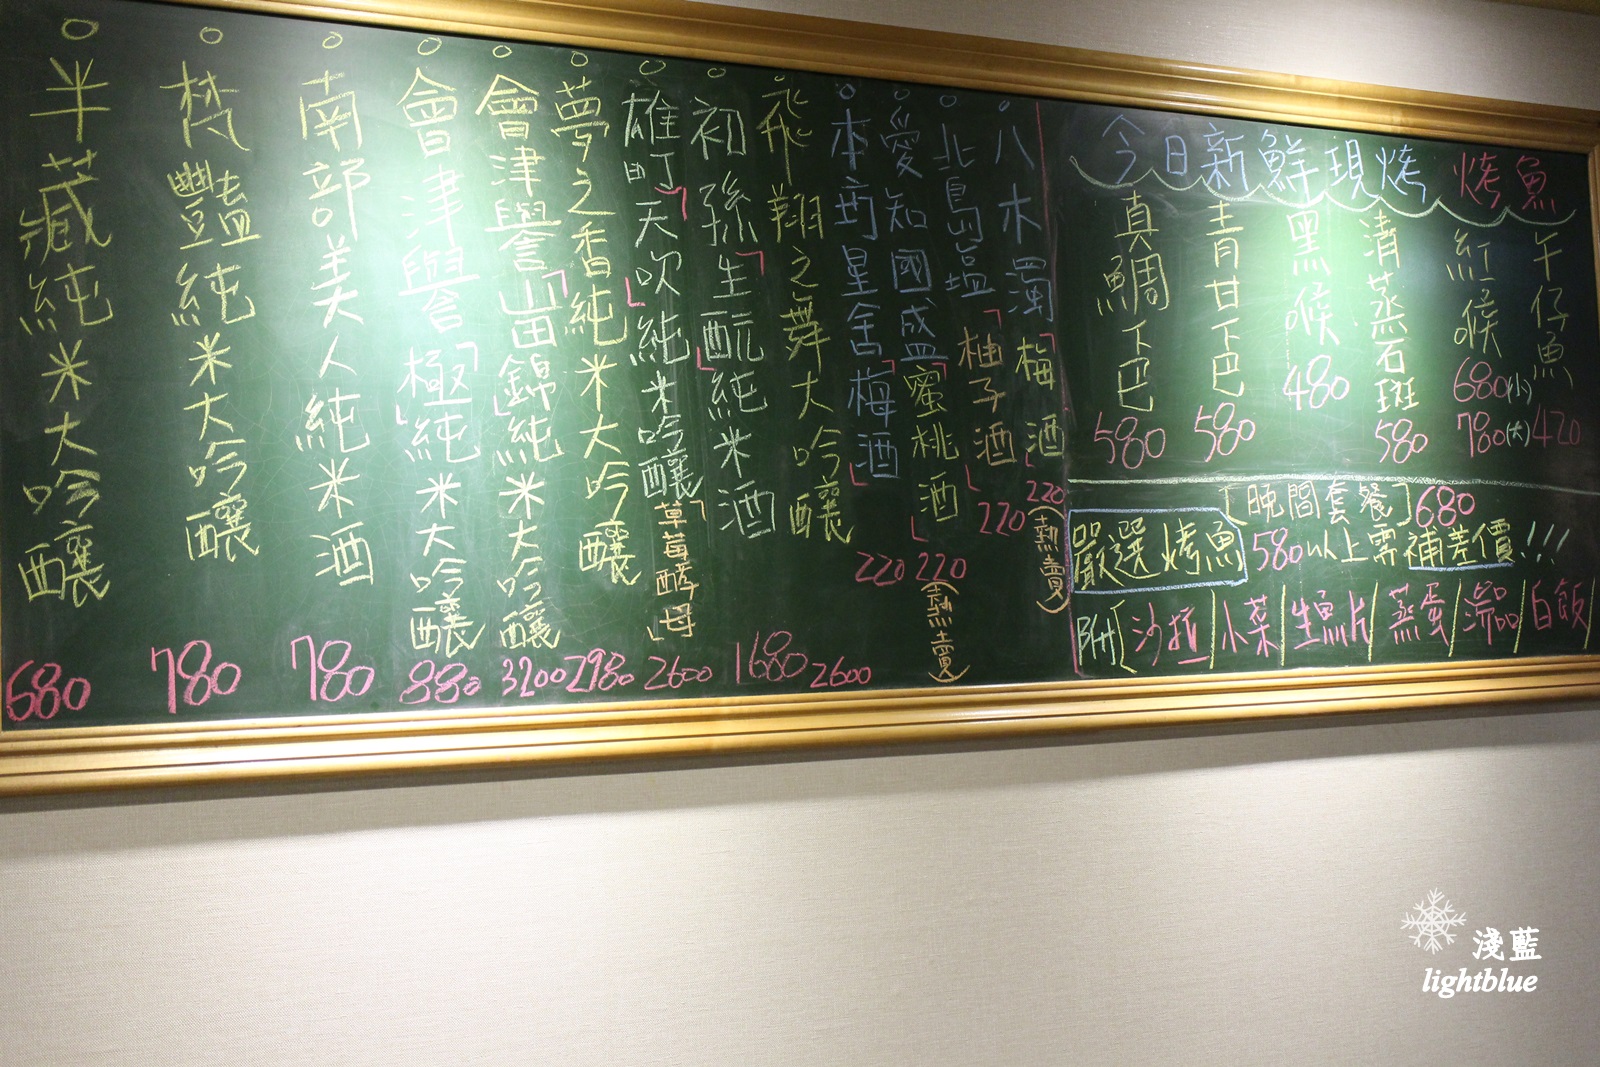 今日新鮮現烤 烤魚
午仔魚 420
紅喉 680(小) 780(大)
清蒸石斑 580
黑喉 480
青甘下巴 580
真鯛下巴 580
[晚間套餐] 680
嚴選烤魚 580以上需補差價!!!
附(沙拉/小菜/生魚片/蒸蛋/湯品/白飯/
八木濁「梅酒」 220(熱賣)
北島盐「柚子酒」 220
愛知國盛「蜜桃酒」 220(熱賣)
本坊星舍「梅酒」 220
飛翔之舞大吟釀 2600
初孫「生酛」純米酒 1680
雄町「天吹」純米吟釀「草莓酵母」 2600
夢之香純米大吟釀 2980
會津譽「山田錦」純米大吟釀 3200
會津譽「極」純米大吟釀 880
南部美人純米酒 780
梵 豔純米大吟釀 780
半藏純米大吟釀 680
淺藍
lightblue